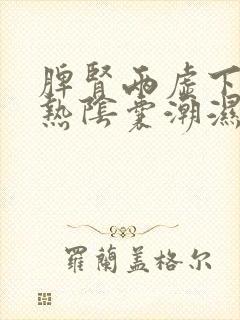 脾腎兩虛下
熱陰囊潮濕
羅蘭蓋格尔